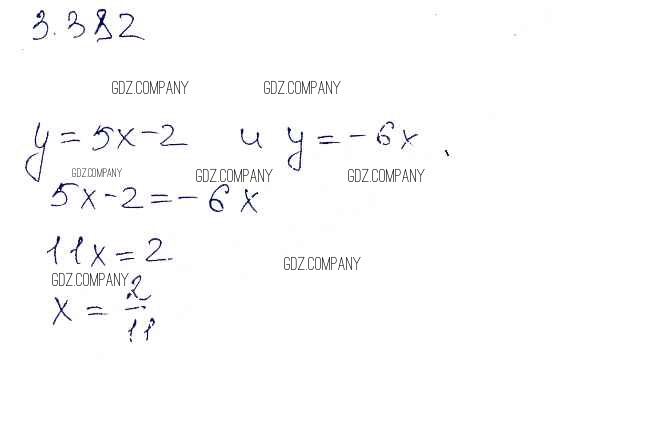 3.382
GDZ.COMPANY GDZ.COMPANY
y = 5x - 2 и y = -6x.
GDZ.COMPANY GDZ.COMPANY GDZ.COMPANY
5x - 2 = -6x
11x = 2.
GDZ.COMPANY GDZ.COMPANY
x = 2/11